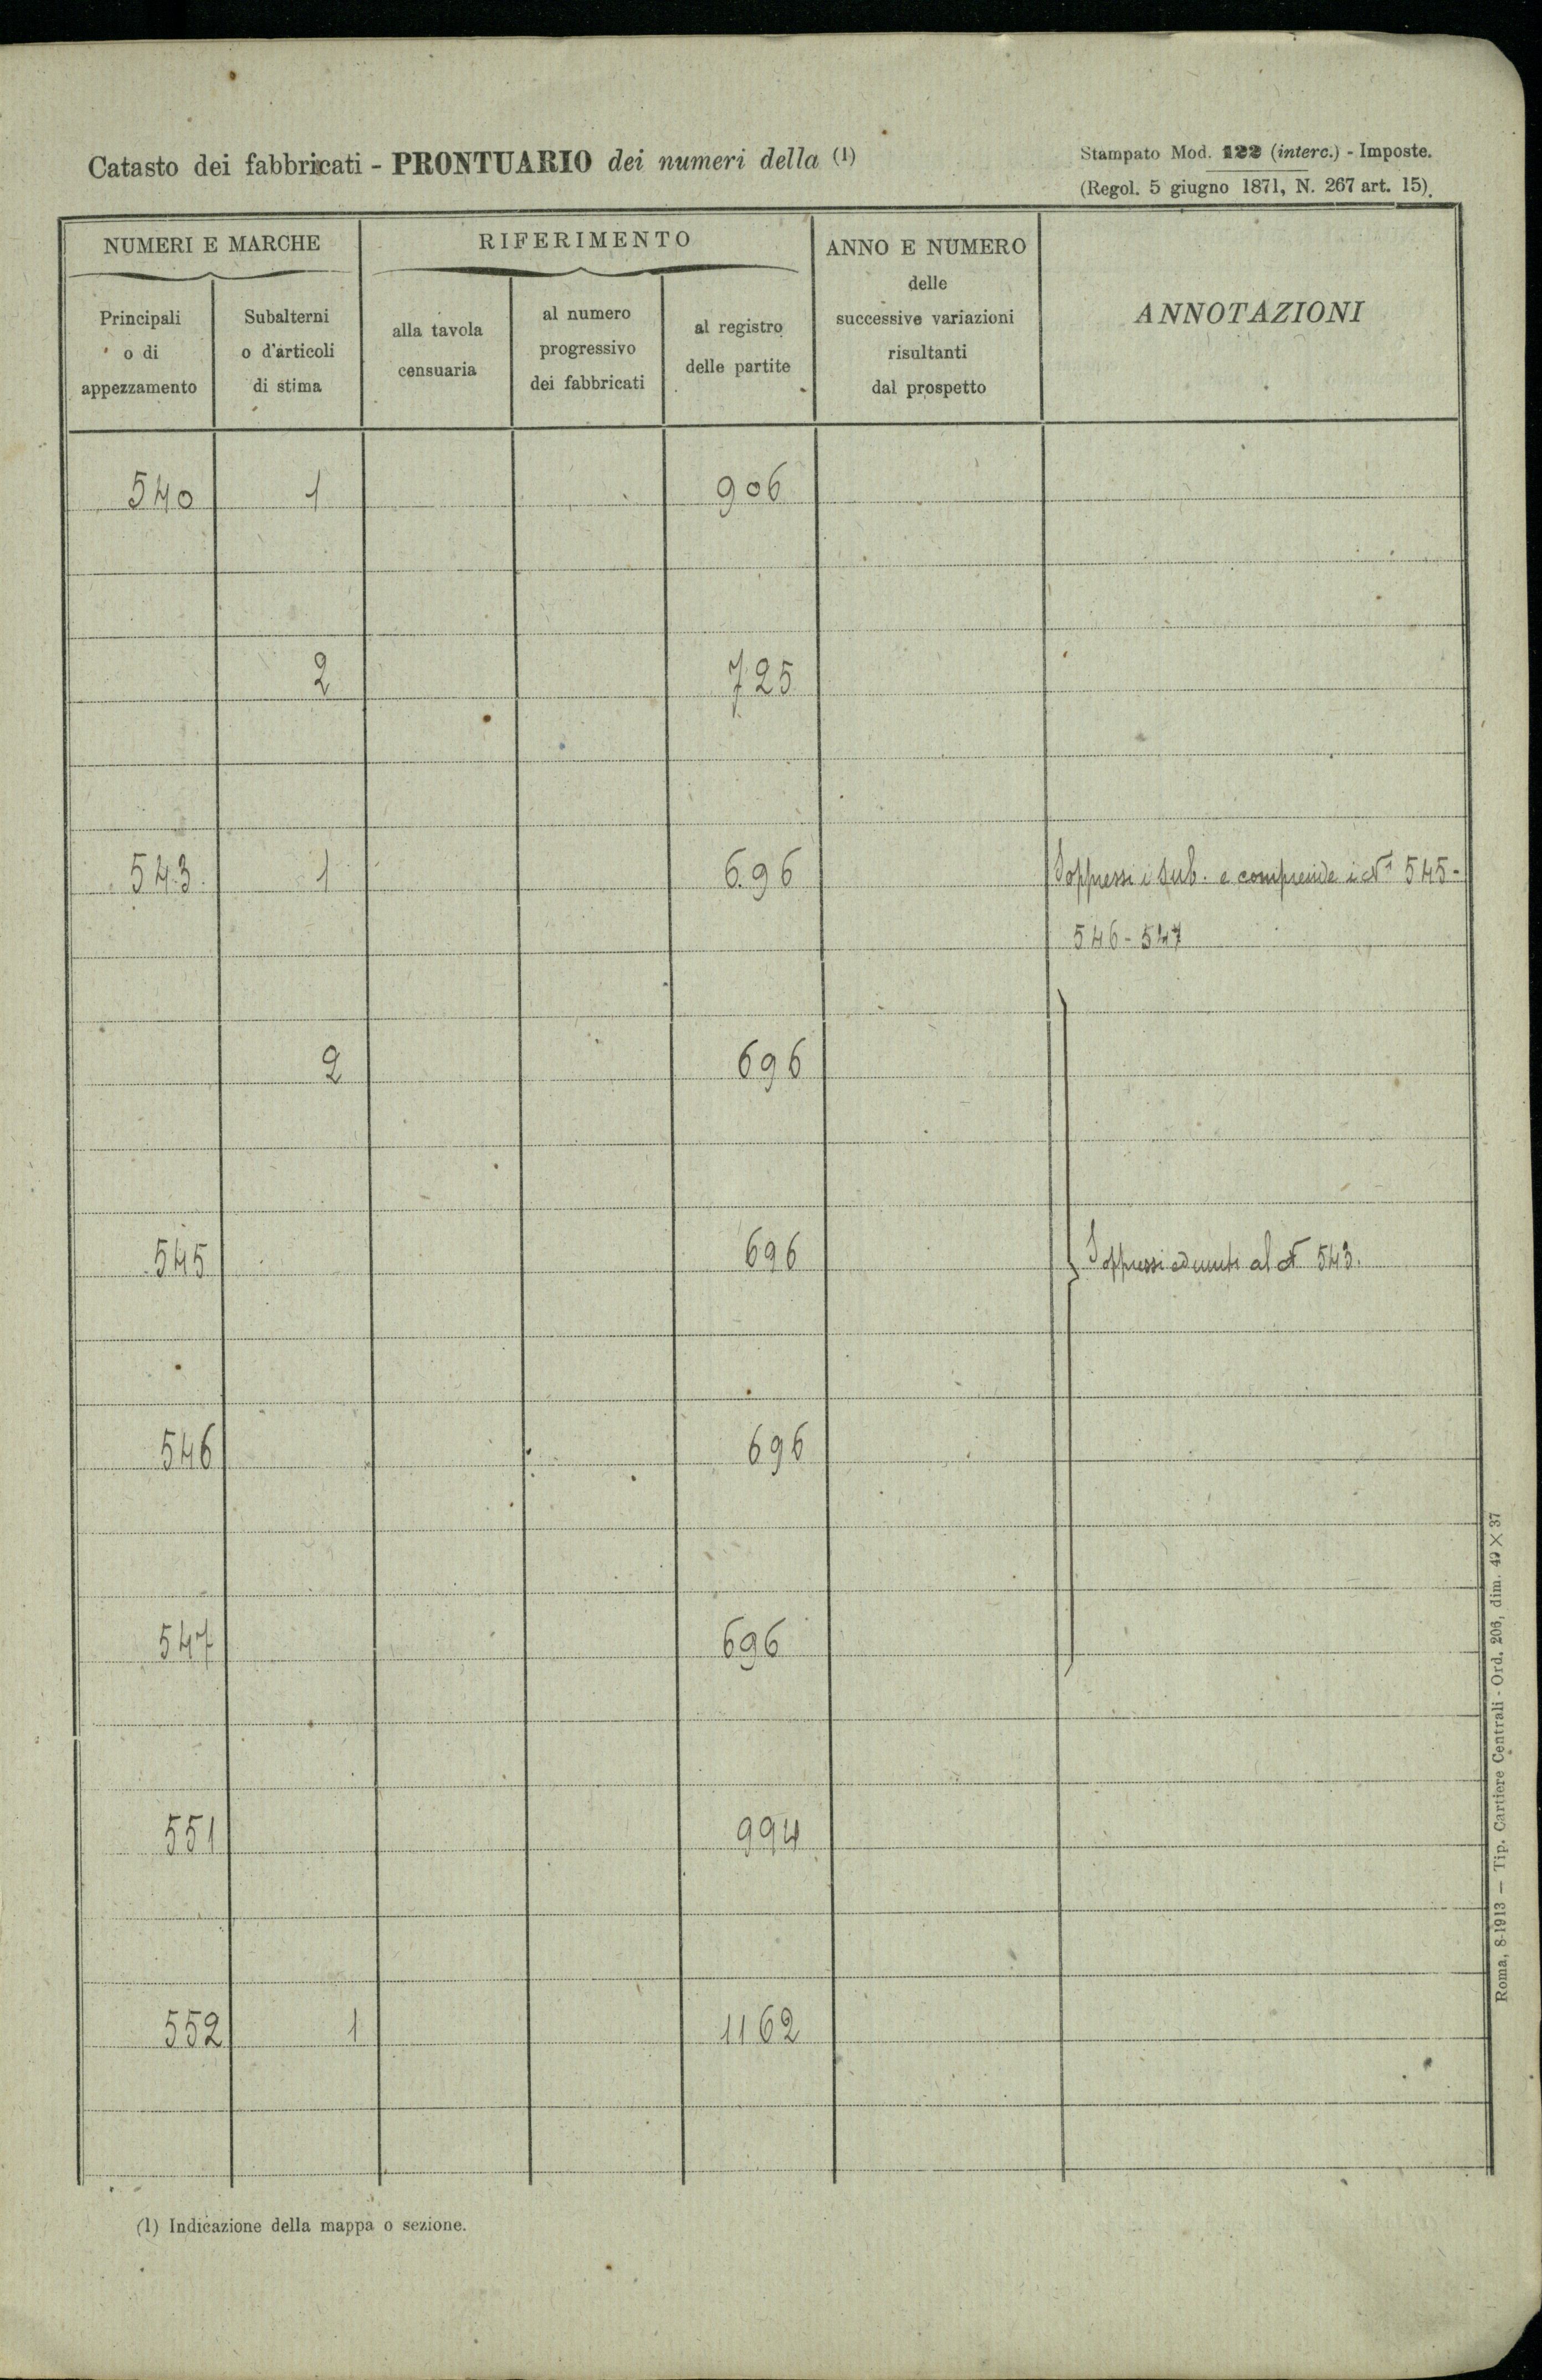 Catasto dei fabbricati - PRONTUARIO dei numeri della (1)
Stampato Mod. 122 (interc.) - Imposte.
(Regol. 5 giugno 1871, N. 267 art. 15).
NUMERI E MARCHE
RIFERIMENTO
ANNO E NUMERO
delle
successive variazioni
risultanti
dal prospetto
ANNOTAZIONI
Principali
o di
appezzamento
Subalterni
o d'articoli
di stima
alla tavola
censuaria
al numero
progressivo
dei fabbricati
al registro
delle partite
540 1 906
2 725
543 1 696 Soppressi i sub. e comprende i Nⁱ 545-
546-547
2 696
545 696 Soppressi ed uniti al N 543.
546 696
547 696
551 994
552 1 1162
(1) Indicazione della mappa o sezione.
Roma, 8-1913 — Tip. Cartiere Centrali - Ord. 206, dim. 49 × 37